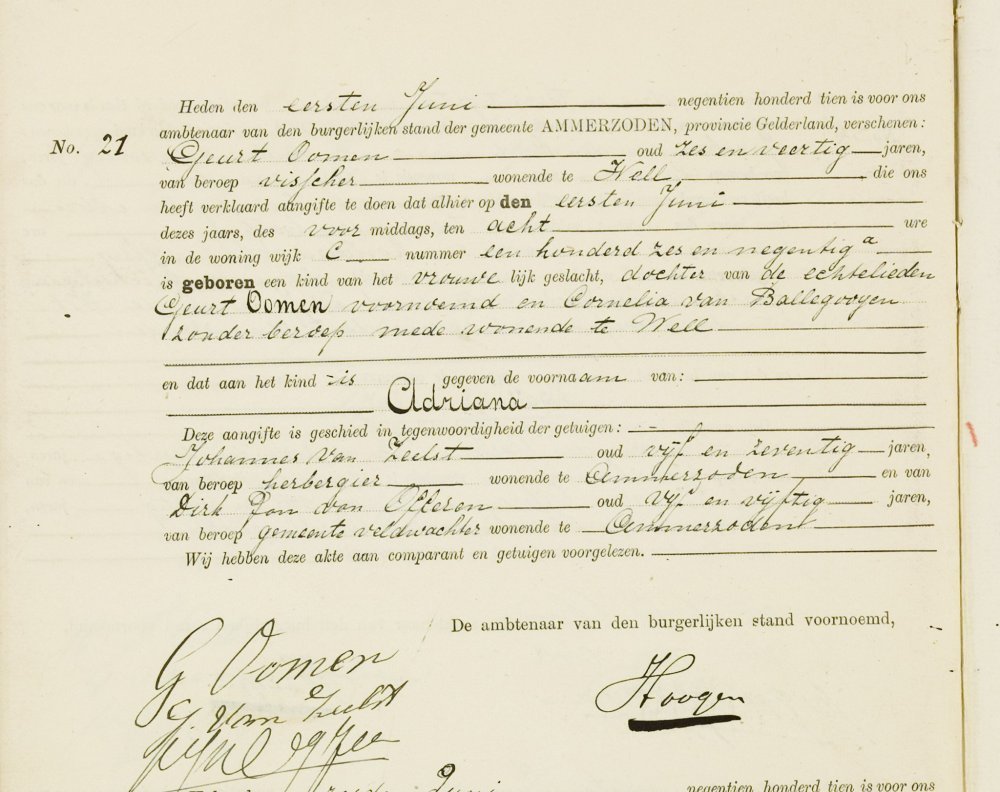 Heden den eersten Juni negentien honderd tien is voor ons
No. 21
ambtenaar van den burgerlijken stand der gemeente AMMERZODEN, provincie Gelderland, verschenen:
Geurt Oomen oud zes en veertig jaren,
van beroep visscher wonende te Well die ons
heeft verklaard aangifte te doen dat alhier op den eersten Juni
dezes jaars, des voor middags, ten acht ure
in de woning wijk C nummer een honderd zes en negentig a
is geboren een kind van het vrouwe lijk geslacht, dochter van de echtelieden
Geurt Oomen voornoemd en Cornelia van Ballegooyen
zonder beroep mede wonende te Well
en dat aan het kind is gegeven de voornaam van:
Adriana
Deze aangifte is geschied in tegenwoordigheid der getuigen:
Johannes van Zeelst oud vijf en zeventig jaren,
van beroep herbergier wonende te Ammerzoden en van
Dirk Jan van Officren oud vijf en vijftig jaren,
van beroep gemeente veldwachter wonende te Ammerzoden
Wij hebben deze akte aan comparant en getuigen voorgelezen.
De ambtenaar van den burgerlijken stand voornoemd,
G Oomen
Hoogen
J. van Zeelst
Juni negentien honderd tien is voor ons